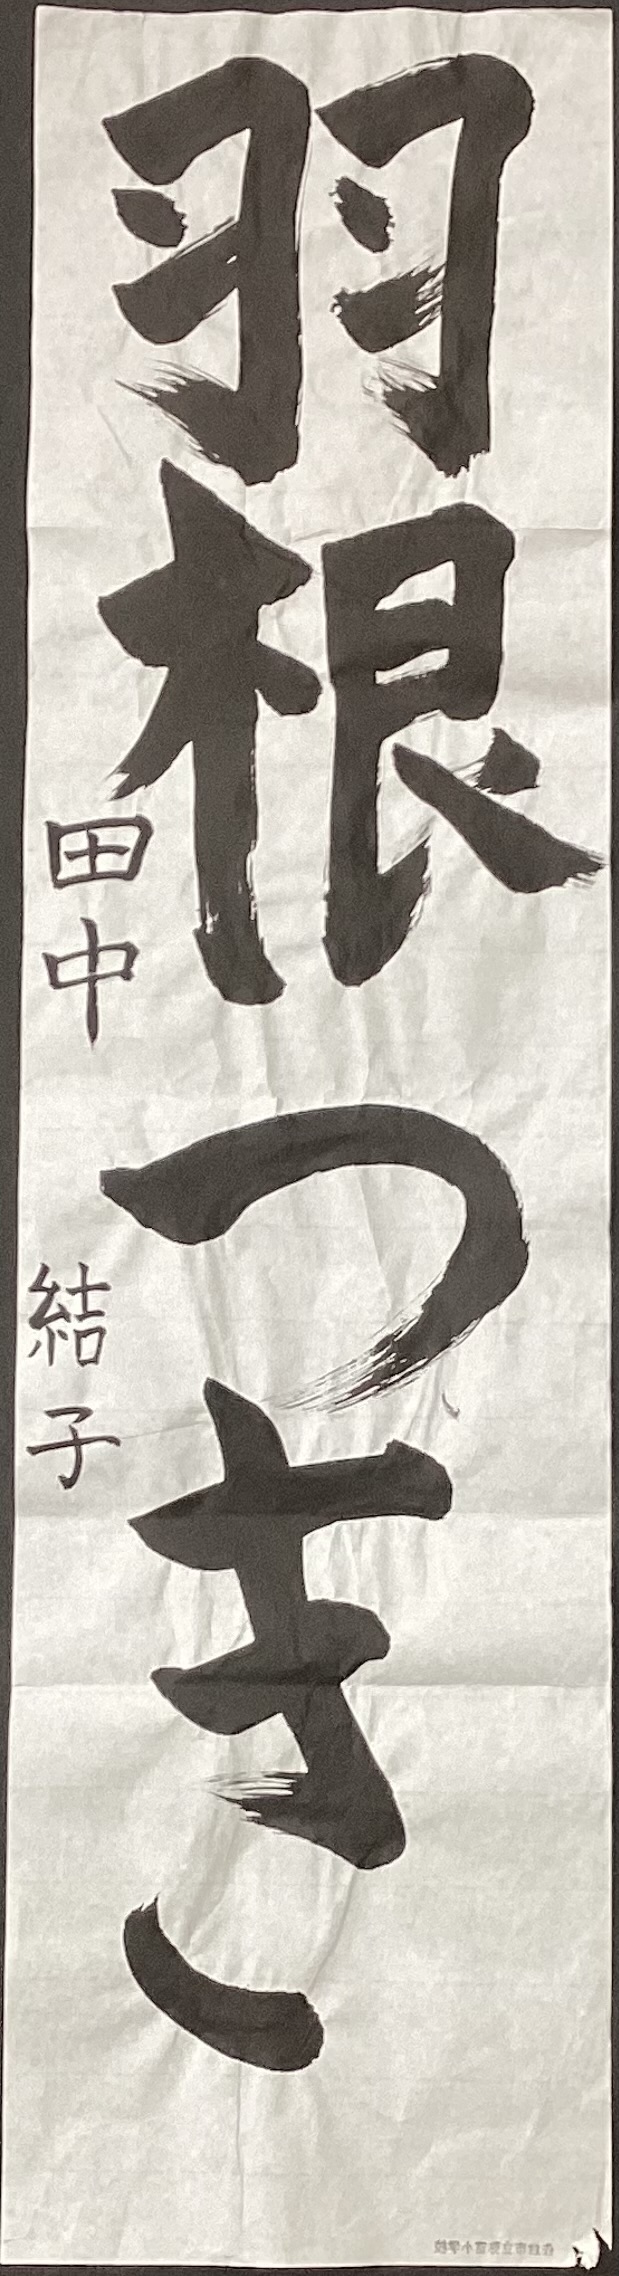 羽根つき
田中 結子